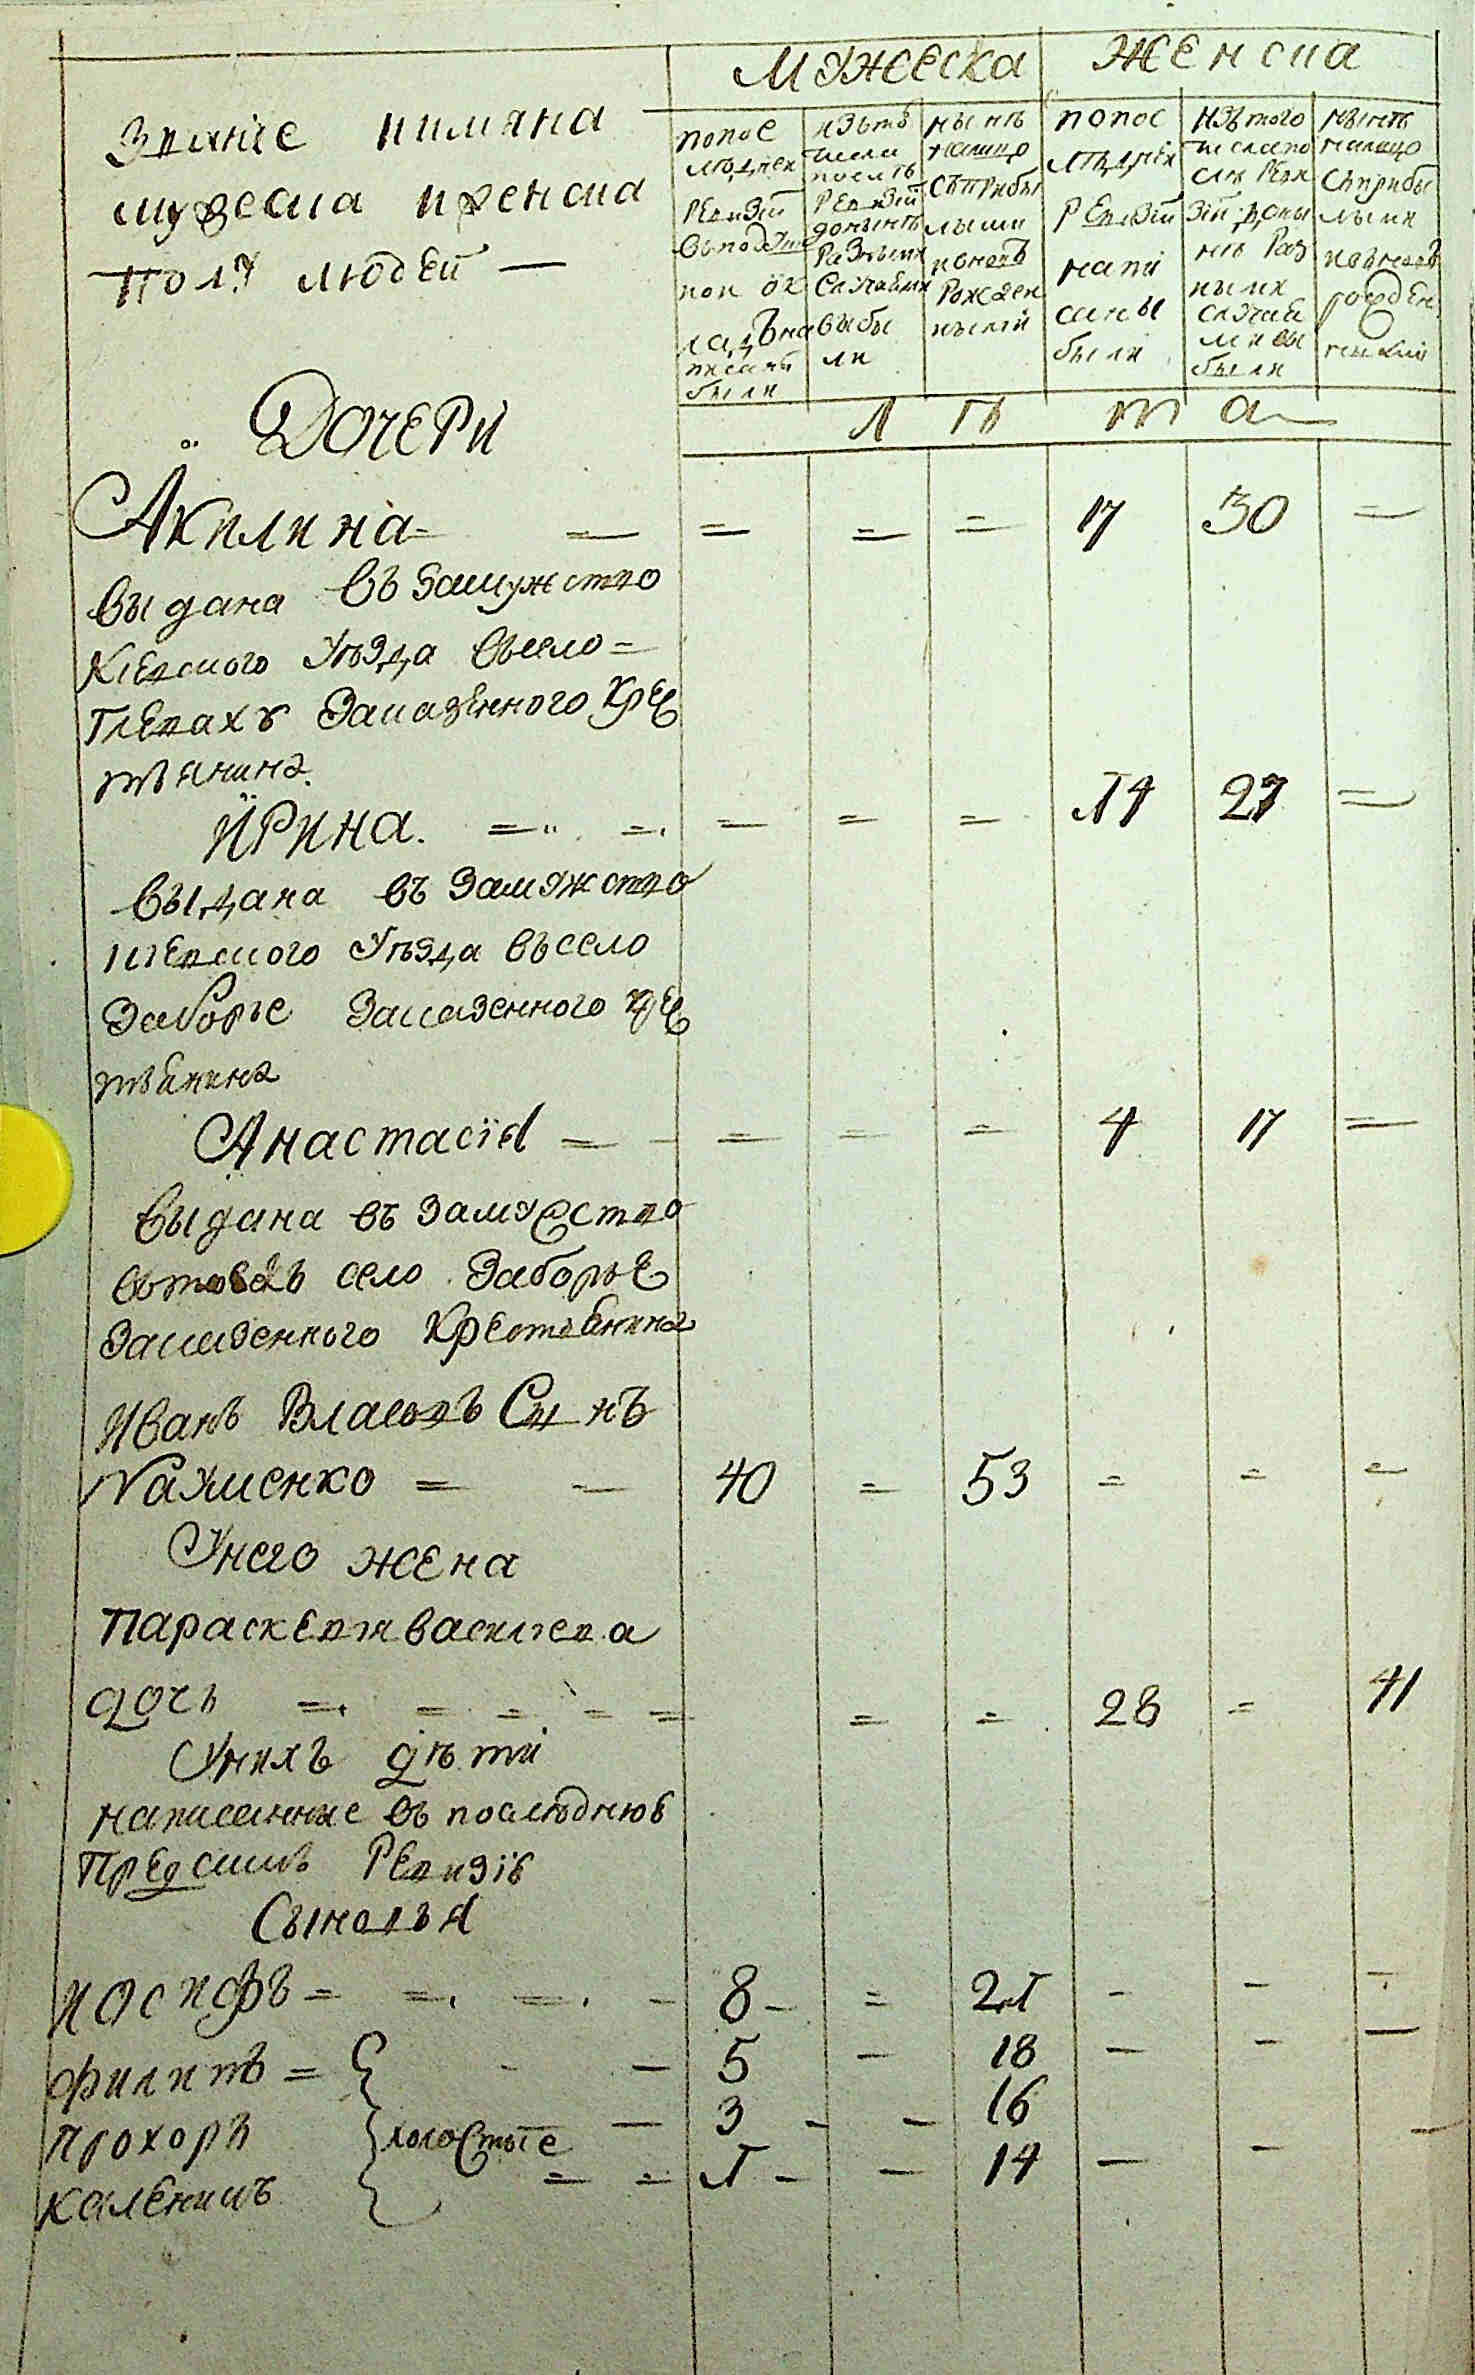 Мужеска Женска
Звание иимяна
мужеска иженска
полу людей —
попос
лѣдней
Ревизїи
вподуш
ном ок
ладѣна
писаны
были
изъто
числа
послѣ
Ревизїи
донынѣ
Разными
Случаями
выбы
ли
нынѣ
налицо
съприбы
лыми
иновъ
Рожден
ными
попос
лѣдней
Ревизїи
напи
саны
были
изътого
числапо
слѣ Реви
зїи доны
нѣ Раз
ными
случая
ми вы
были
нынѣ
налицо
съприбы
лыми
иновъ
рожден
ными
Л ѣ т а
Дочери
Акилина = = = = = 17 30 =
выдана въ замужство
Кїевского Уѣзда въсело=
Глеваху заказенного кре
стьянина.
Ирина. = = = = = 14 27 =
выдана въ замужство
кїевского Уѣзда въсело
Заборье заказенного кре
стьянина
Анастасїя = = = = 4 17 =
выдана въ замужство
втожъ село Заборье
заказенного крестьянина
Иванъ Власовъ Сынъ
Науменко = = 40 = 53 = = =
Унего жена
Параскевия василева
дочь = = = = = = = 28 = 41
Унихъ дѣти
написанные въ послѣднюю
Предсимъ Ревизїю
Сыновья
иосифъ = = = - 8 - = 21 - - -
филипъ = - - 5 - 18 - - -
прохоръ холостые - 3 - - 16
каленикъ = = 1 - - 14 - - -